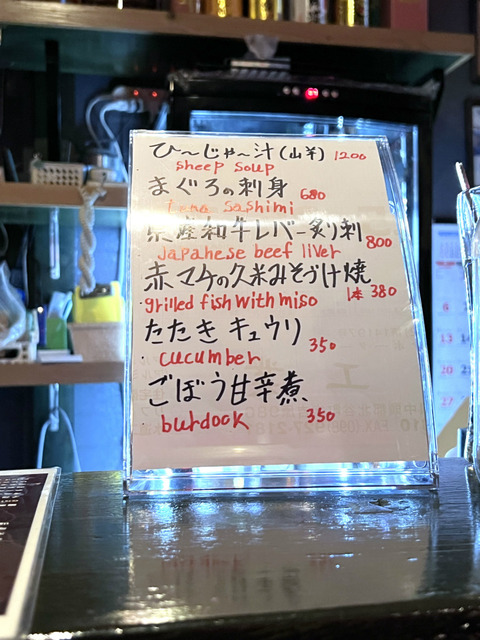 ひ〜じゃ〜汁(山羊) 1200
sheep soup
まぐろの刺身 680
tuna sashimi
県産和牛レバー炙り刺 800
Japanese beef liver
赤マチの久米みそづけ焼 1本 380
grilled fish with miso
たたきキュウリ 350
cucumber
ごぼう甘辛煮
burdock 350